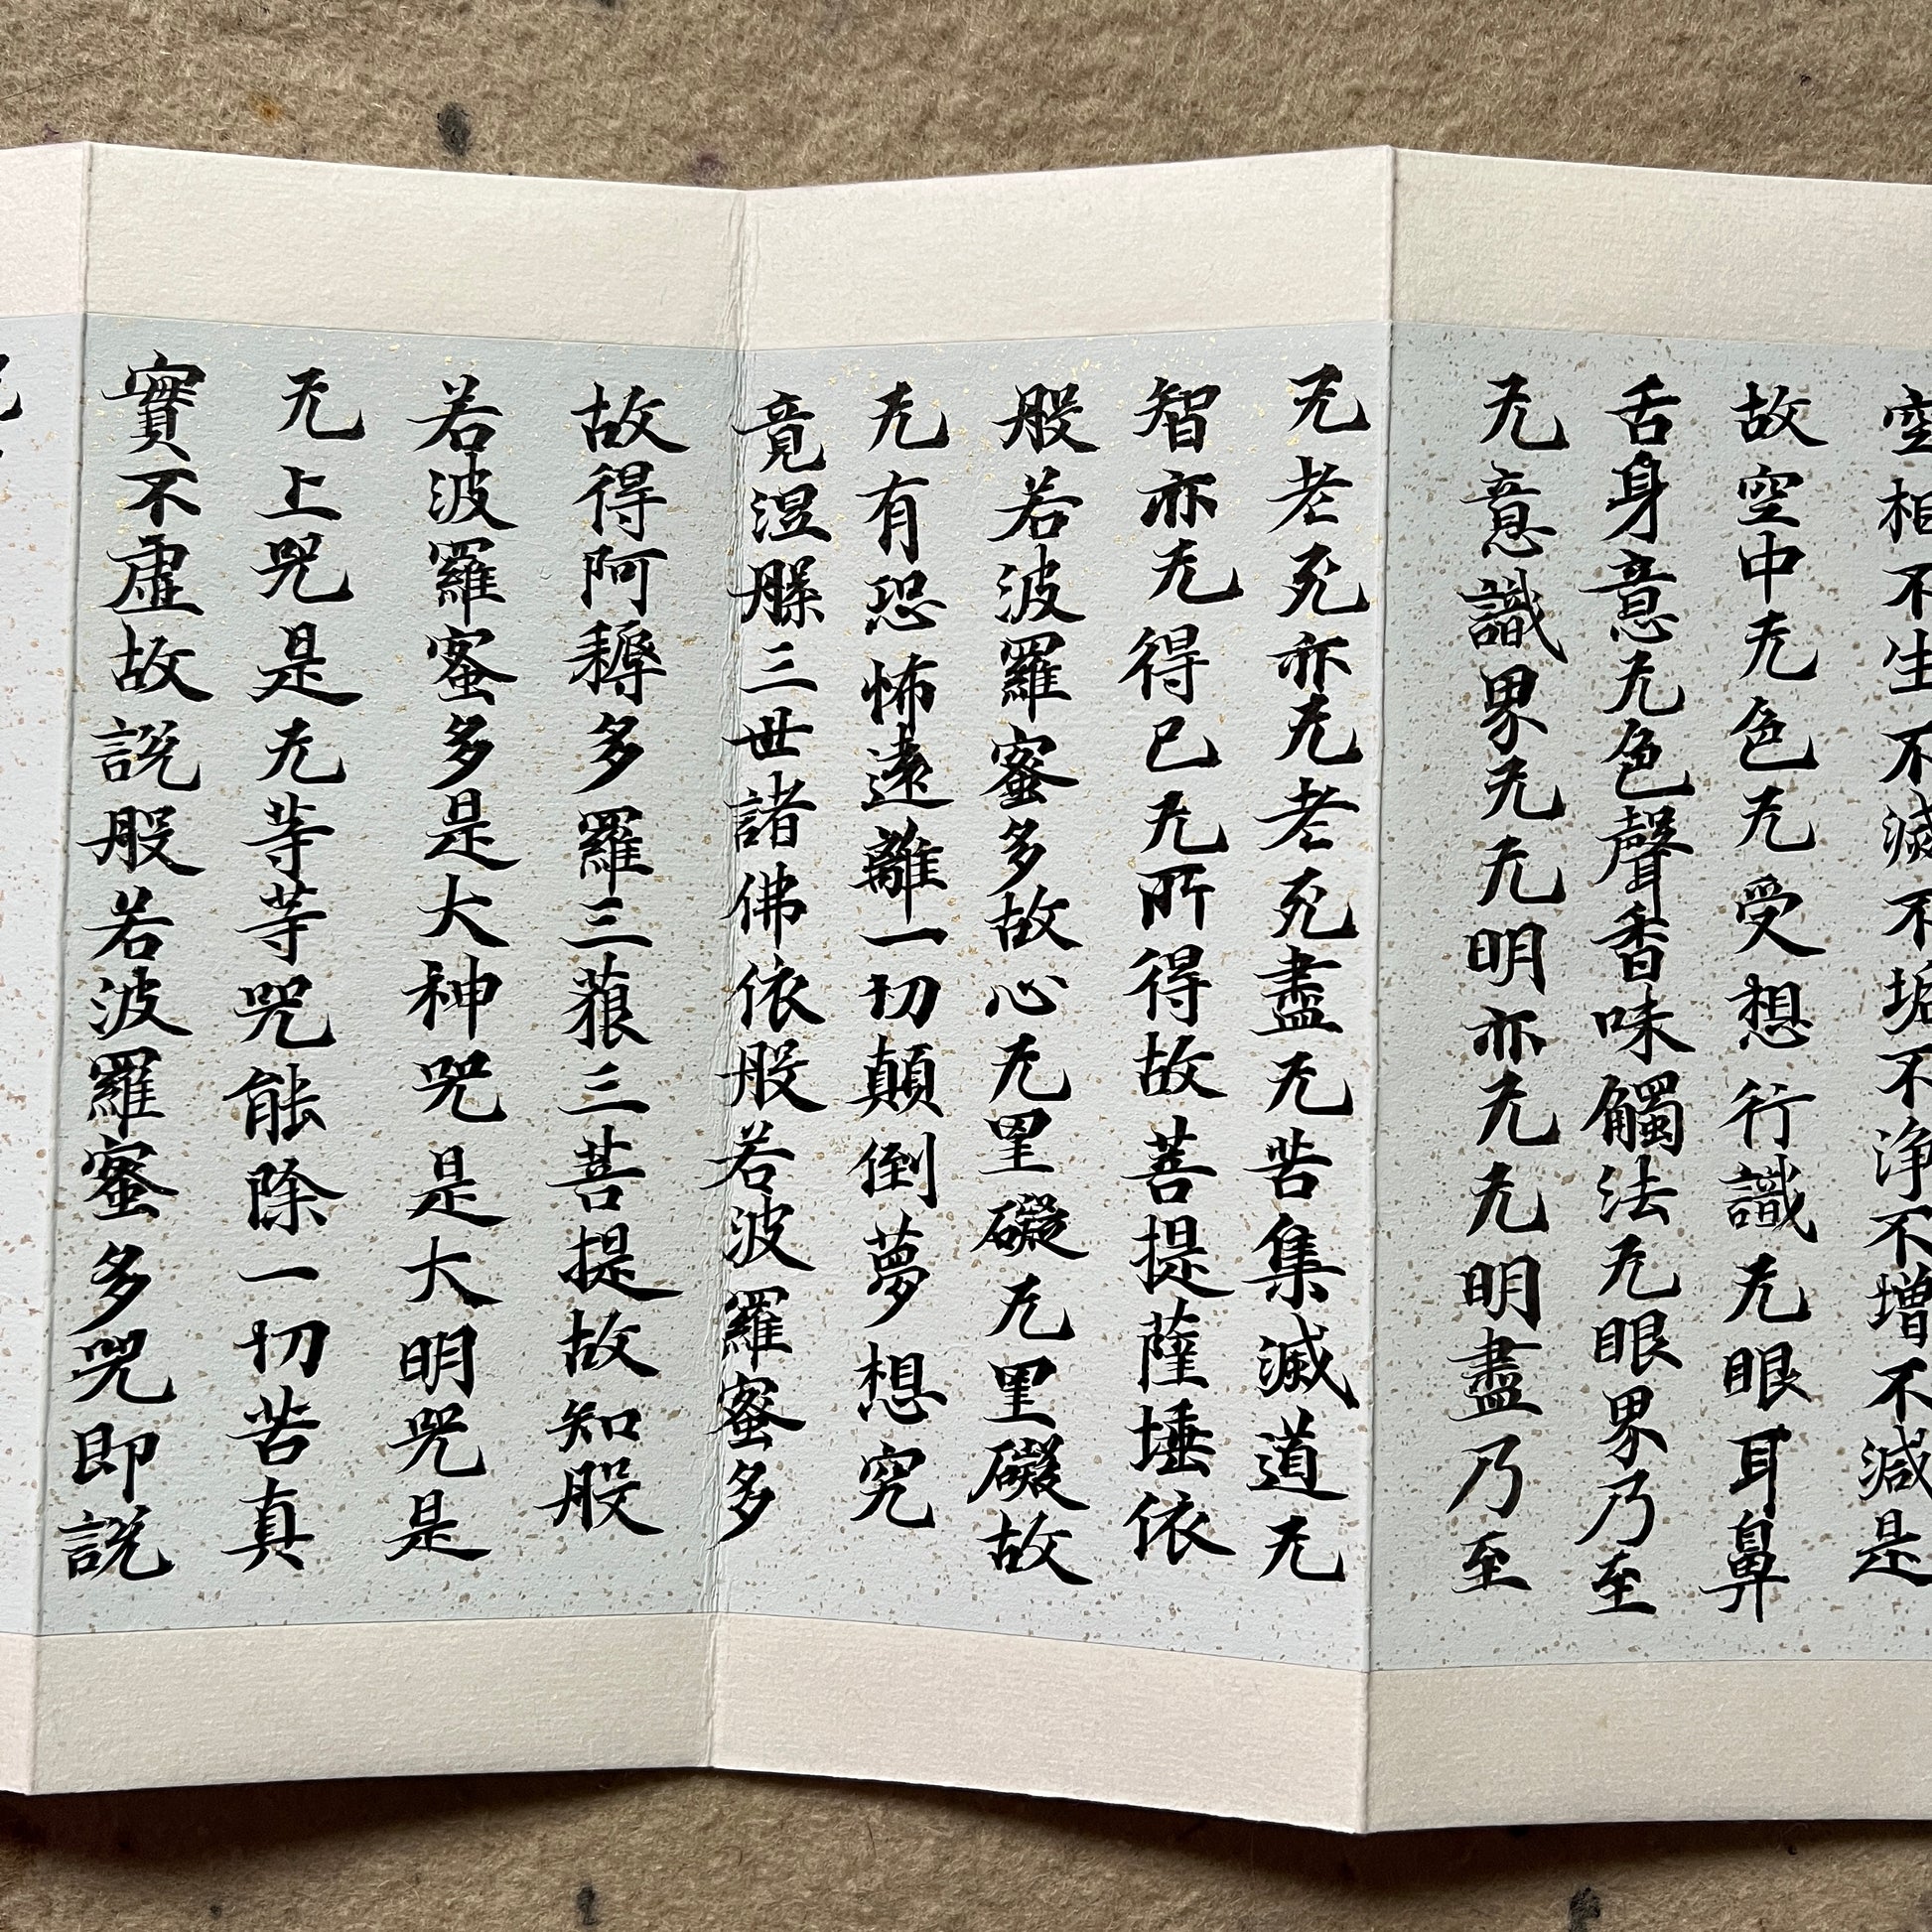 空相不生不滅不垢不浄不增不減是
故空中无色无受想行識无眼耳鼻
舌身意无色聲香味觸法无眼界乃至
无意識界无无明亦无无明盡乃至
无老死亦无老死盡无苦集滅道无
智亦无得已无所得故菩提薩埵依
般若波羅蜜多故心无罣礙无罣礙故
无有恐怖遠離一切顛倒夢想究
竟涅槃三世諸佛依般若波羅蜜多
故得阿耨多羅三藐三菩提故知般
若波羅蜜多是大神咒是大明咒是
无上咒是无等等咒能除一切苦真
實不虛故説般若波羅蜜多咒即説